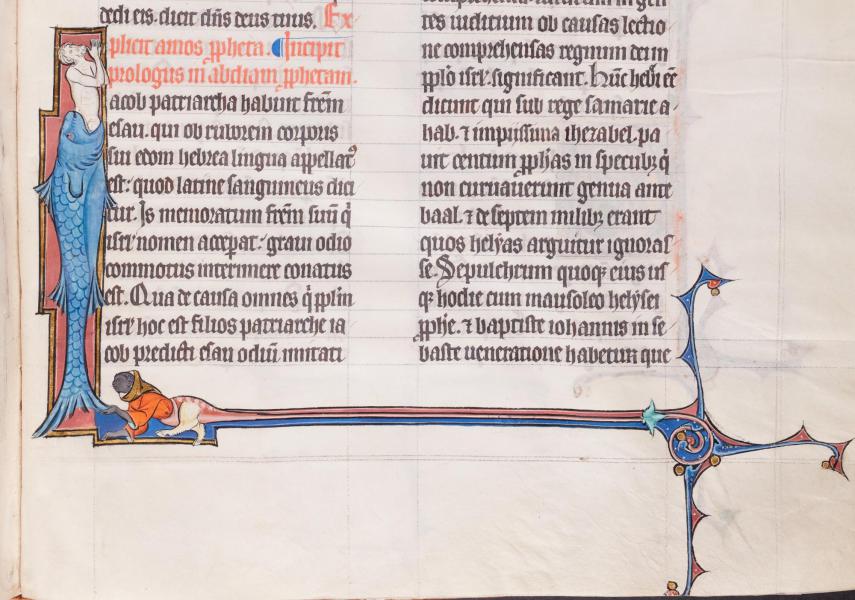 dedi eis. dicit dñs deus tuus. Ex
plicit amos ꝓpheta. Incipit
prologus in abdiam ꝓphetam.
acob patriarcha habuit frēm
esau. qui ob ruborem corporis
sui edom hebrea lingua appellatˀ
est: quod latine sanguineus dici
tur. Is memoratum frēm suū q̇
isrł nomen acceꝑat: graui odio
commotus interimere conatus
est. Qua de causa omnes q̇ ppłm
isrł hoc est filios patriarche ia
cob predicti esau odiū imitati
res iudicium ob causas lectio
ne comprehensas regnum dei in
ppło isrł. significant. Hūc hebrei eē
dicunt qui sub rege samarie a
hab. ⁊ impiissima ihezabel. pa
uit centum ꝓphās in specubꝫ q̇
non curuauerunt genua ante
baal. ⁊ de septem milibꝫ erant
quos helyas arguitur ignoras
se. Sepulchrum quoqꝫ eius us
qꝫ hodie cum mausoleo helysei
ꝓphē. ⁊ baptiste iohannis in se
baste ueneratione habetur que